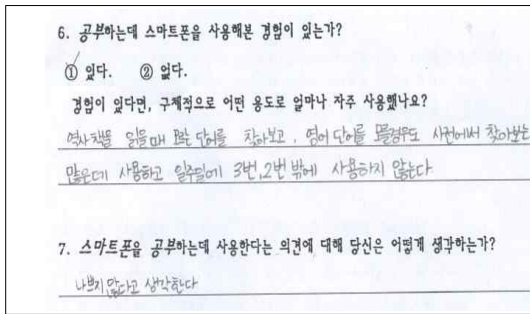 6. 공부하는데 스마트폰을 사용해본 경험이 있는가?
① 있다. ② 없다.
경험이 있다면, 구체적으로 어떤 용도로 얼마나 자주 사용했나요?
역사책을 읽을때 모르는 단어를 찾아보고, 영어 단어를 모를경우도 사전에서 찾아보는
사용하고 일주일에 3번, 2번 밖에 사용하지 않는다
7. 스마트폰을 공부하는데 사용한다는 의견에 대해 당신은 어떻게 생각하는가?
나쁘지 않다고 생각한다